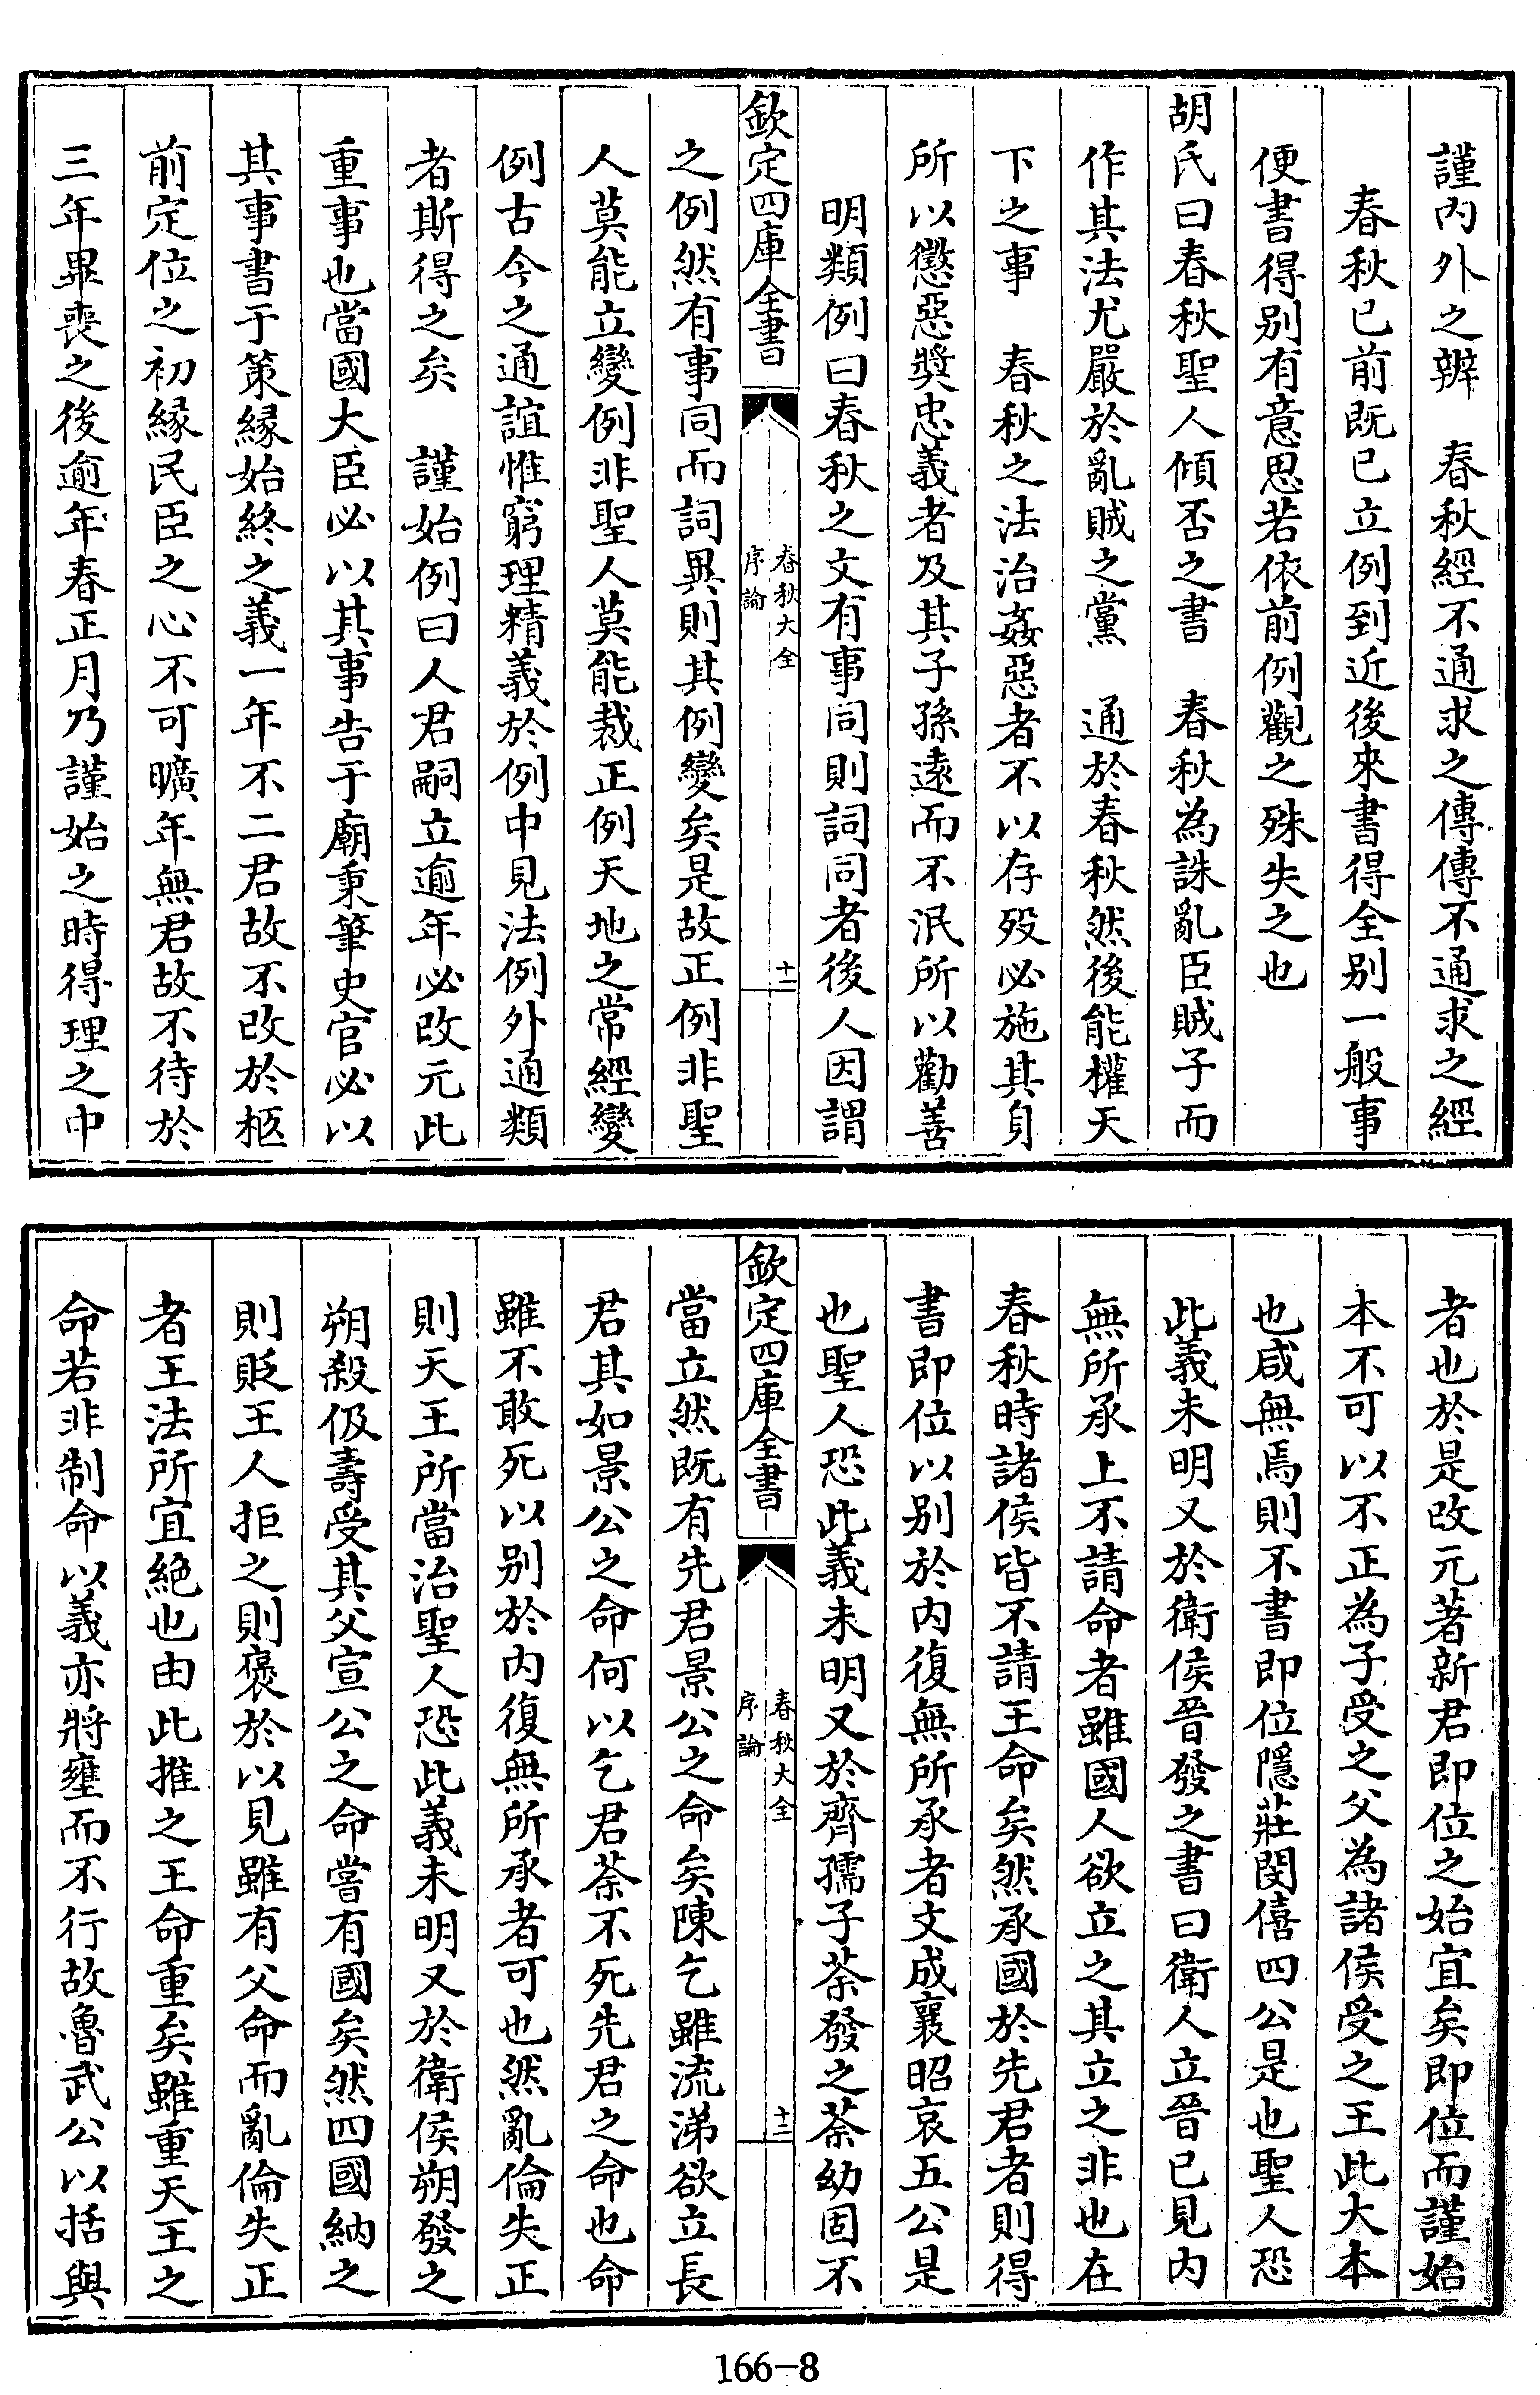 謹内外之辨　春秋經不通求之傳傳不通求之經
春秋已前既已立例到近後來書得全别一般事
便書得别有意思若依前例觀之殊失之也
胡氏曰春秋聖人傾否之書　春秋為誅亂臣賊子而
作其法尤嚴於亂賊之黨　通於春秋然後能權天
下之事　春秋之法治姦惡者不以存歿必施其身
所以懲惡奬忠義者及其子孫逺而不泯所以勸善
明類例曰春秋之文有事同則詞同者後人因謂
欽定四庫全書
春秋大全
序論
十二
之例然有事同而詞異則其例變矣是故正例非聖
人莫能立變例非聖人莫能裁正例天地之常經變
例古今之通誼惟窮理精義於例中見法例外通類
者斯得之矣　謹始例曰人君嗣立逾年必改元此
重事也當國大臣必以其事告于廟秉筆史官必以
其事書于策縁始終之義一年不二君故不改於柩
前定位之初縁民臣之心不可曠年無君故不待於
三年畢喪之後逾年春正月乃謹始之時得理之中
者也於是改元著新君即位之始宜矣即位而謹始
本不可以不正為子受之父為諸侯受之王此大本
也咸無焉則不書即位隱莊閔僖四公是也聖人恐
此義未明又於衛侯晉發之書曰衛人立晉已見内
無所承上不請命者雖國人欲立之其立之非也在
春秋時諸侯皆不請王命矣然承國於先君者則得
書即位以别於内復無所承者文成襄昭哀五公是
也聖人恐此義未明又於齊孺子荼發之荼幼固不
欽定四庫全書
春秋大全
序論
十三
當立然既有先君景公之命矣陳乞雖流涕欲立長
君其如景公之命何以乞君荼不死先君之命也命
雖不敢死以别於内復無所承者可也然亂倫失正
則天王所當治聖人恐此義未明又於衛侯朔發之
朔殺伋壽受其父宣公之命嘗有國矣然四國納之
則貶王人拒之則褒於以見雖有父命而亂倫失正
者王法所宜絶也由此推之王命重矣雖重天王之
命若非制命以義亦將壅而不行故魯武公以括與
166-8